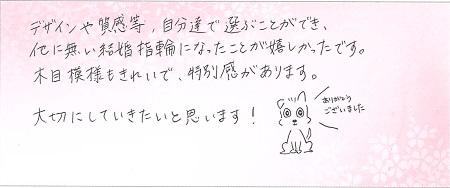 デザインや質感等、自分達で選ぶことができ、
他に無い結婚指輪になったことが嬉しかったです。
木目模様もきれいで、特別感があります。
大切にしていきたいと思います！
ありがとう
ございました